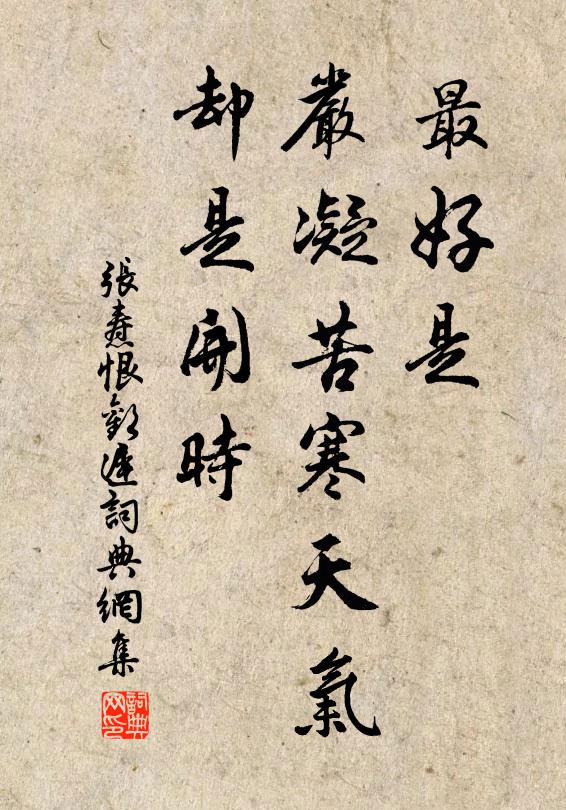 最好是
嚴凝苦寒天氣
却是開時
張燾恨歡遲詞典網集
詞典
网印